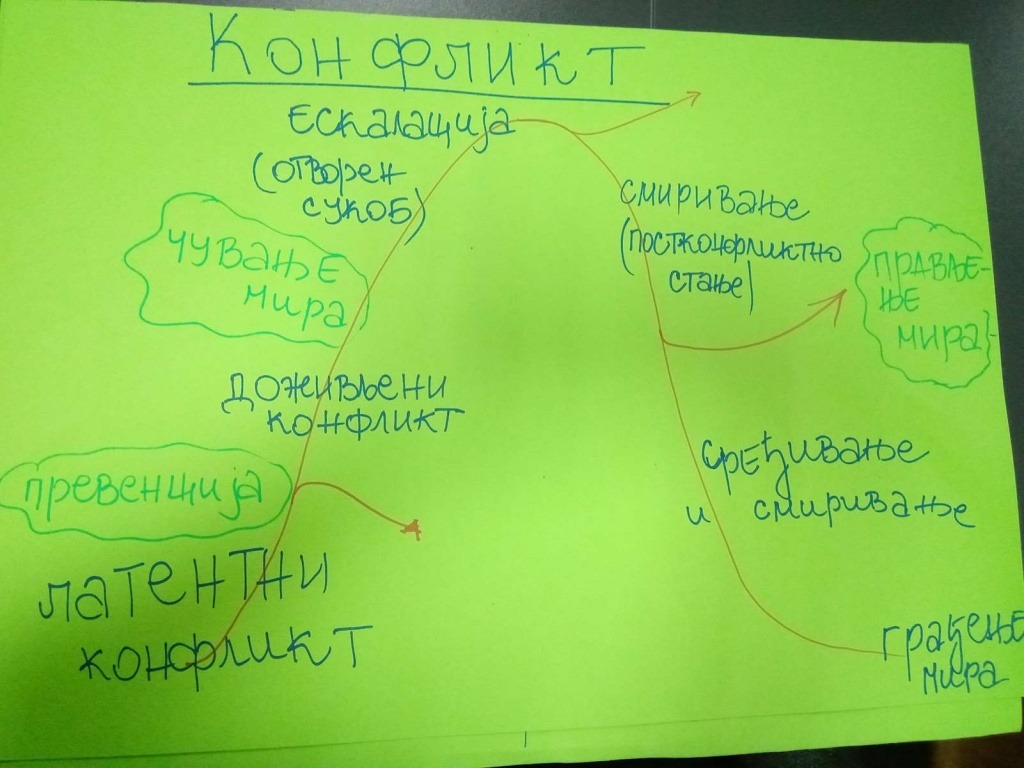 Конфликт
Ескалација
(отворен
сукоб)
чување
мира
доживљени
конфликт
превенција
латентни
конфликт
смиривање
(постконфликтно
стање)
правље-
ње
мира
сређивање
и смиривање
грађење
мира